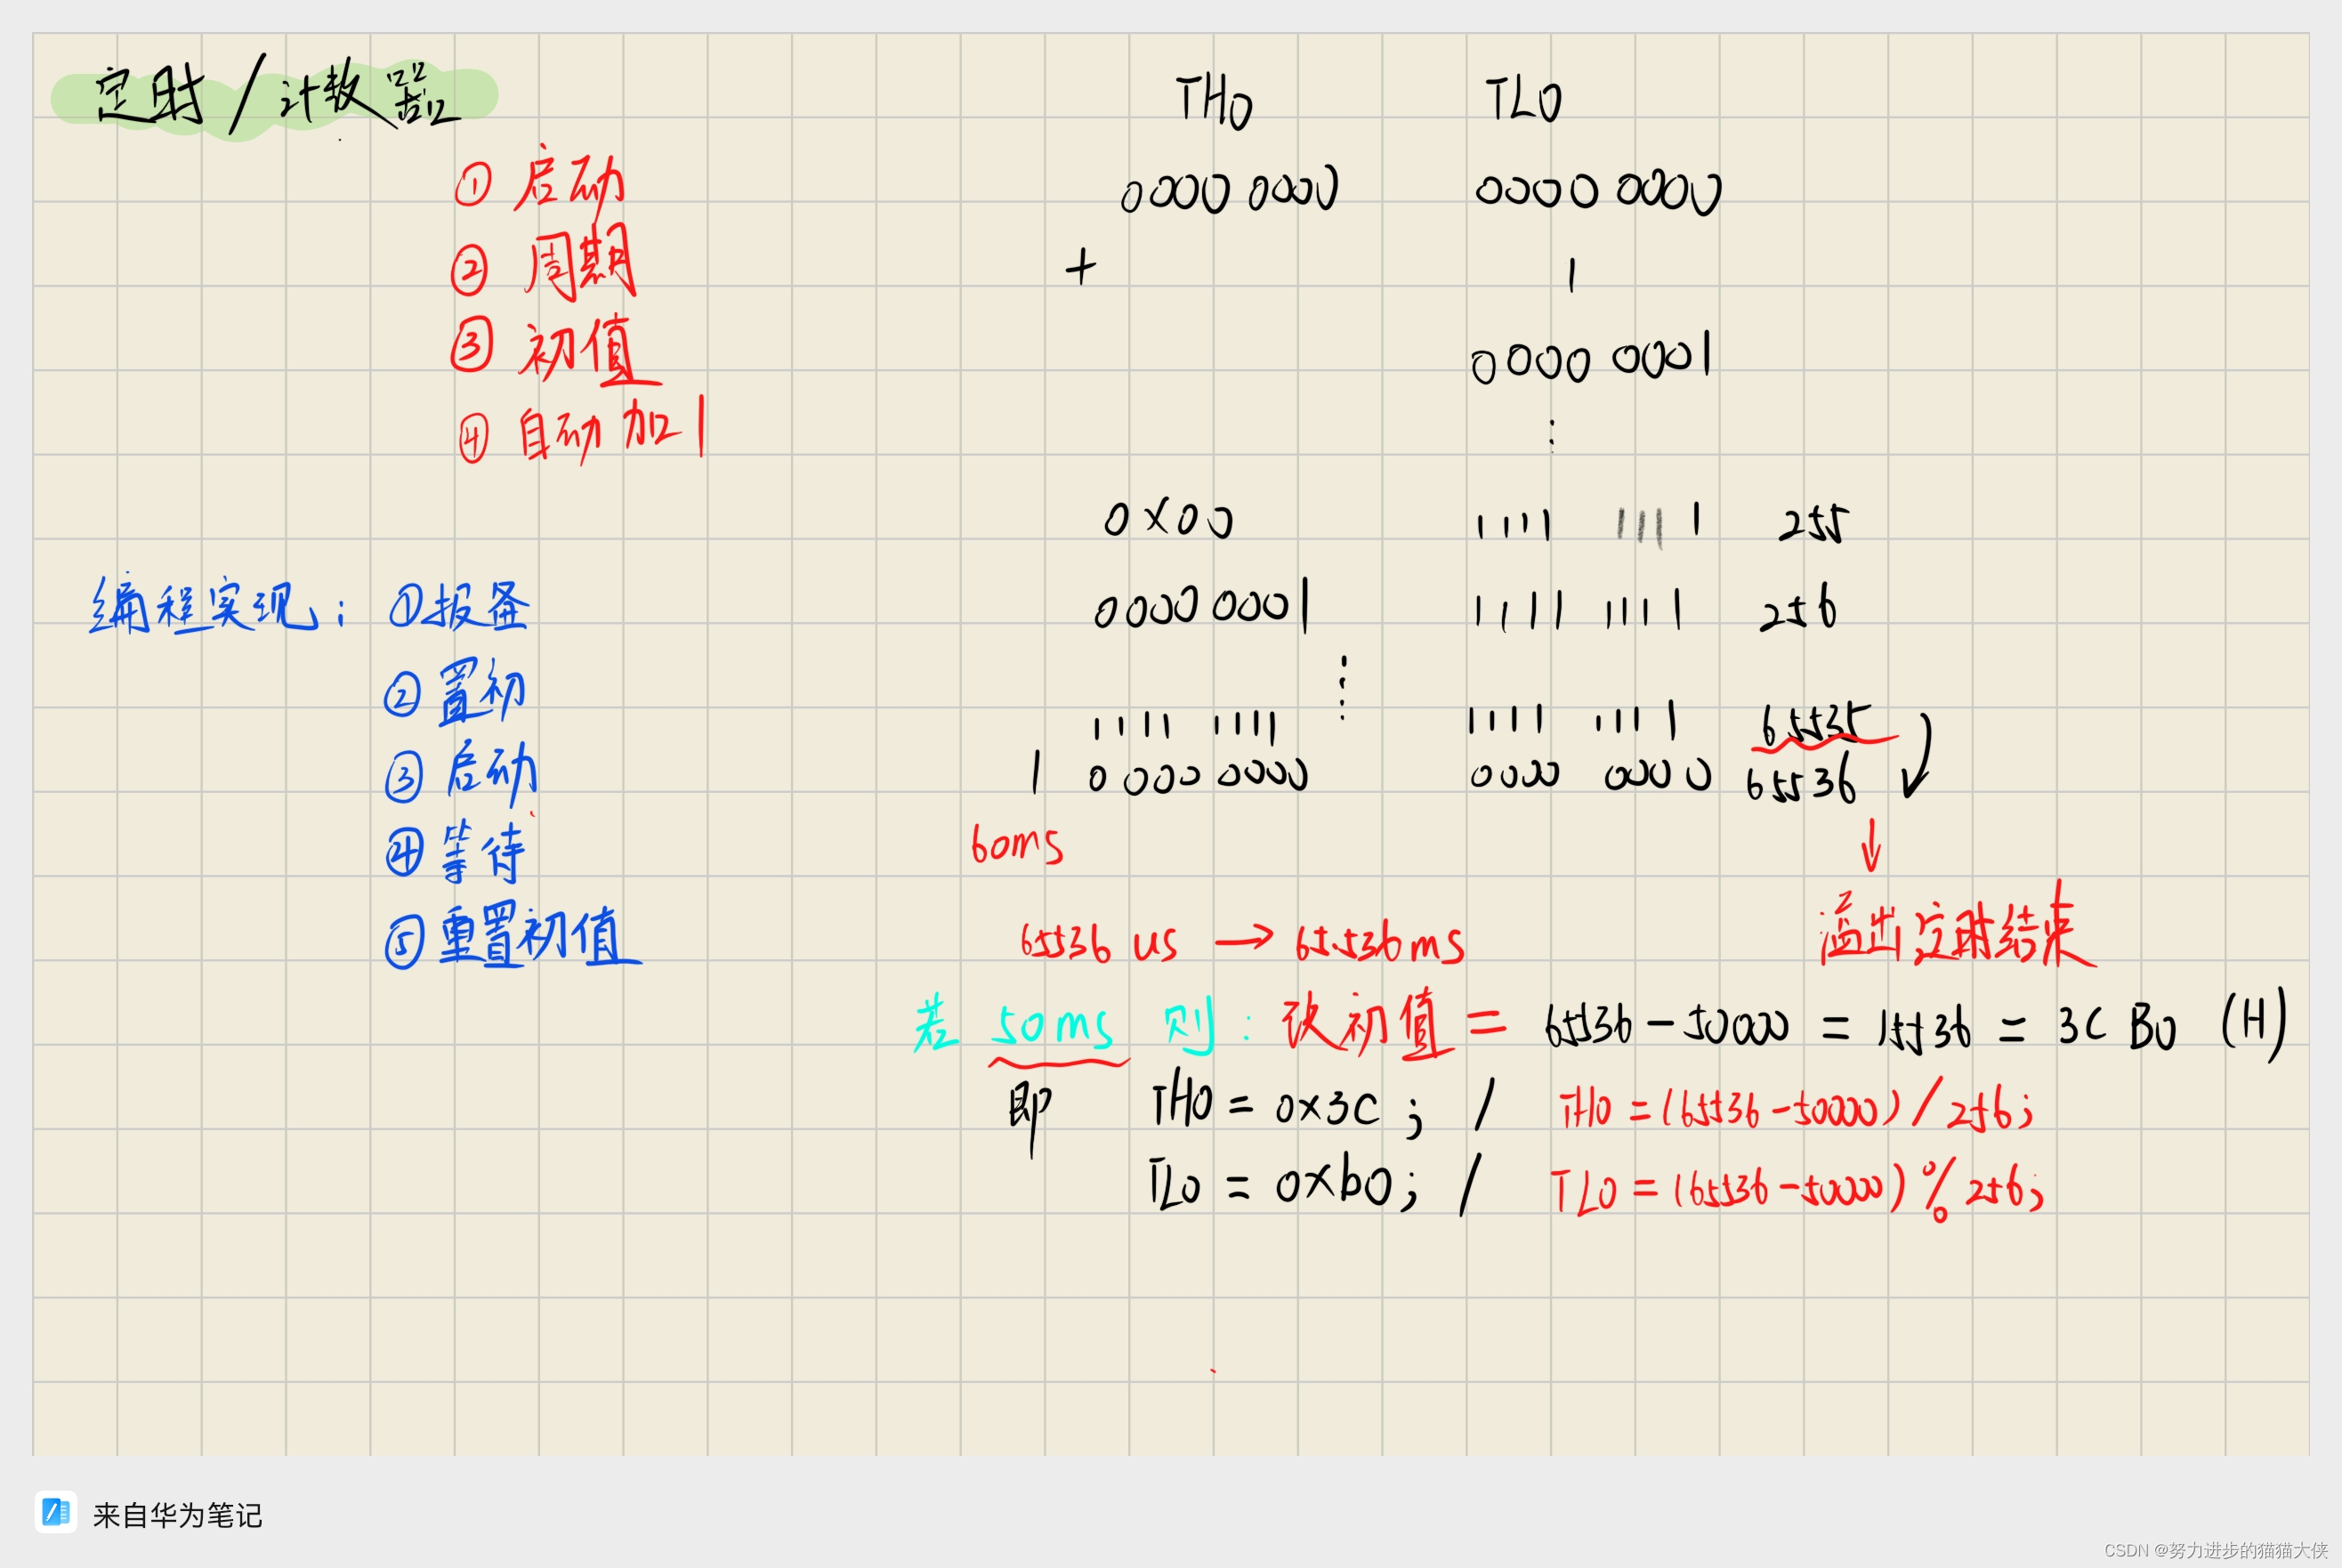 定时/计数器
TH0 TL0
① 启动
0000 0000 0000 0000
② 周期
+ 1
③ 初值
0000 0001
④ 自动加1
0x00 1111 1111 255
编程实现: ①报备
0000 0001 1111 1111 256
②置初
1111 1111 1111 1111 65535
③启动
1 0000 0000 0000 0000 65536
④等待
60ms
⑤重置初值
65536 us → 65.536ms
溢出定时结束
若 50ms 则: 改初值 = 65536-50000 = 15536 = 3C B0 (H)
即 TH0 = 0x3C; / TH0=(65536-50000)/256;
TL0 = 0xb0; / TL0=(65536-50000)%256;
来自华为笔记
CSDN @努力进步的猫猫大侠